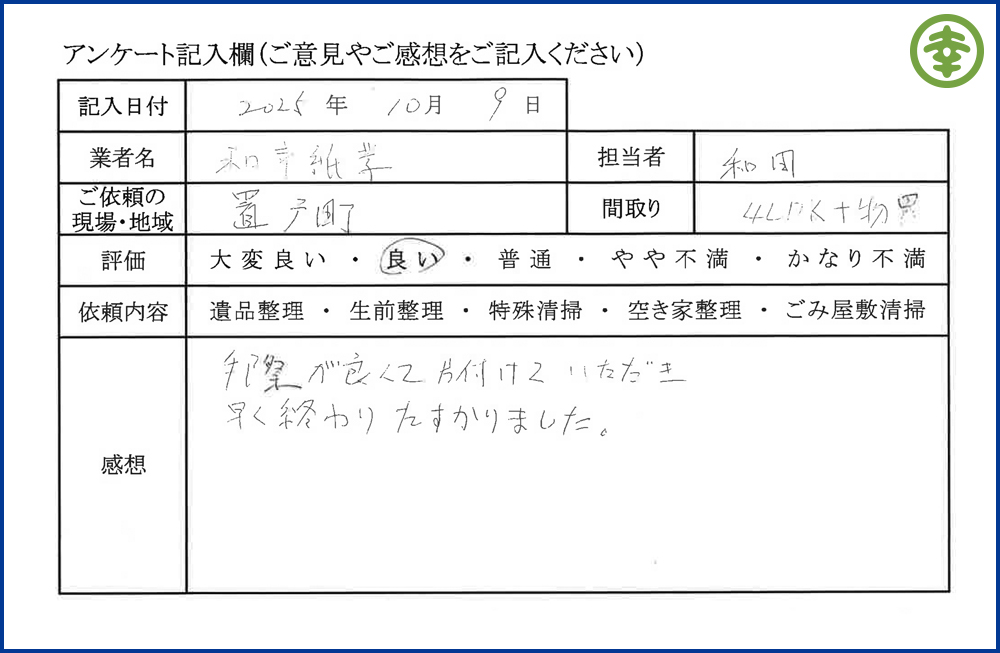 幸
アンケート記入欄（ご意見やご感想をご記入ください）
記入日付 2025 年 10月 9 日
業者名 和幸紙業 担当者 和田
ご依頼の
現場・地域 置戸町 間取り 4LDK+物置
評価 大変良い ・ 良い ・ 普通 ・ やや不満 ・ かなり不満
依頼内容 遺品整理 ・ 生前整理 ・ 特殊清掃 ・ 空き家整理 ・ ごみ屋敷清掃
感想
が良くて片付けていただき
早く終わりたすかりました。